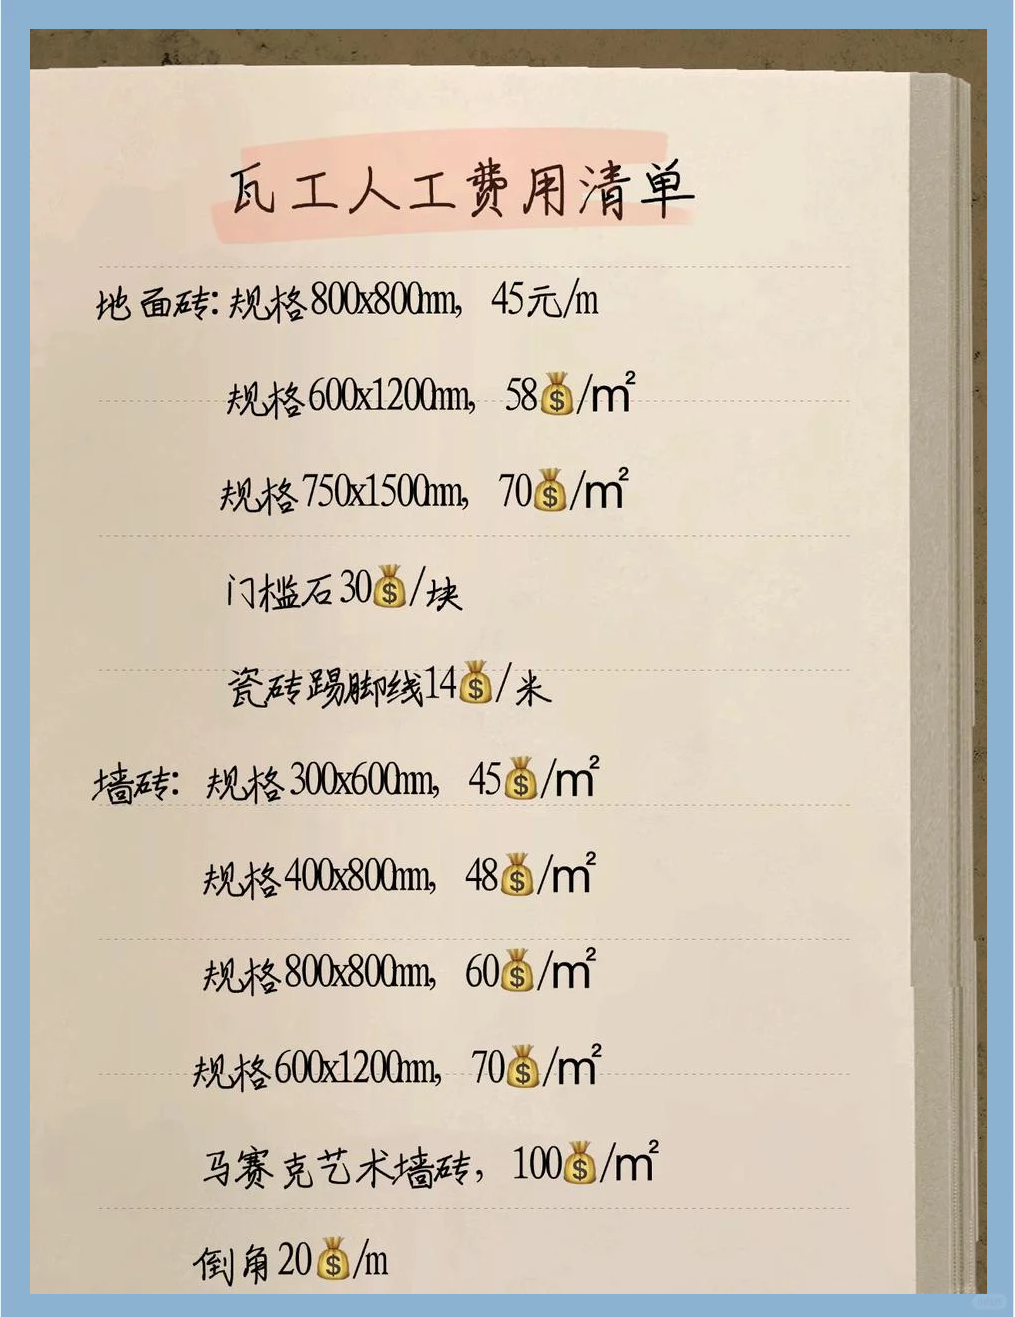 瓦工人工费用清单
地面砖：规格800x800mm， 45元/m
规格600x1200mm， 58💰/m²
规格750x1500mm， 70💰/m²
门槛石30💰/块
瓷砖踢脚线14💰/米
墙砖： 规格300x600mm， 45💰/m²
规格400x800mm， 48💰/m²
规格800x800mm， 60💰/m²
规格600x1200mm， 70💰/m²
马赛克艺术墙砖， 100💰/m²
倒角20💰/m